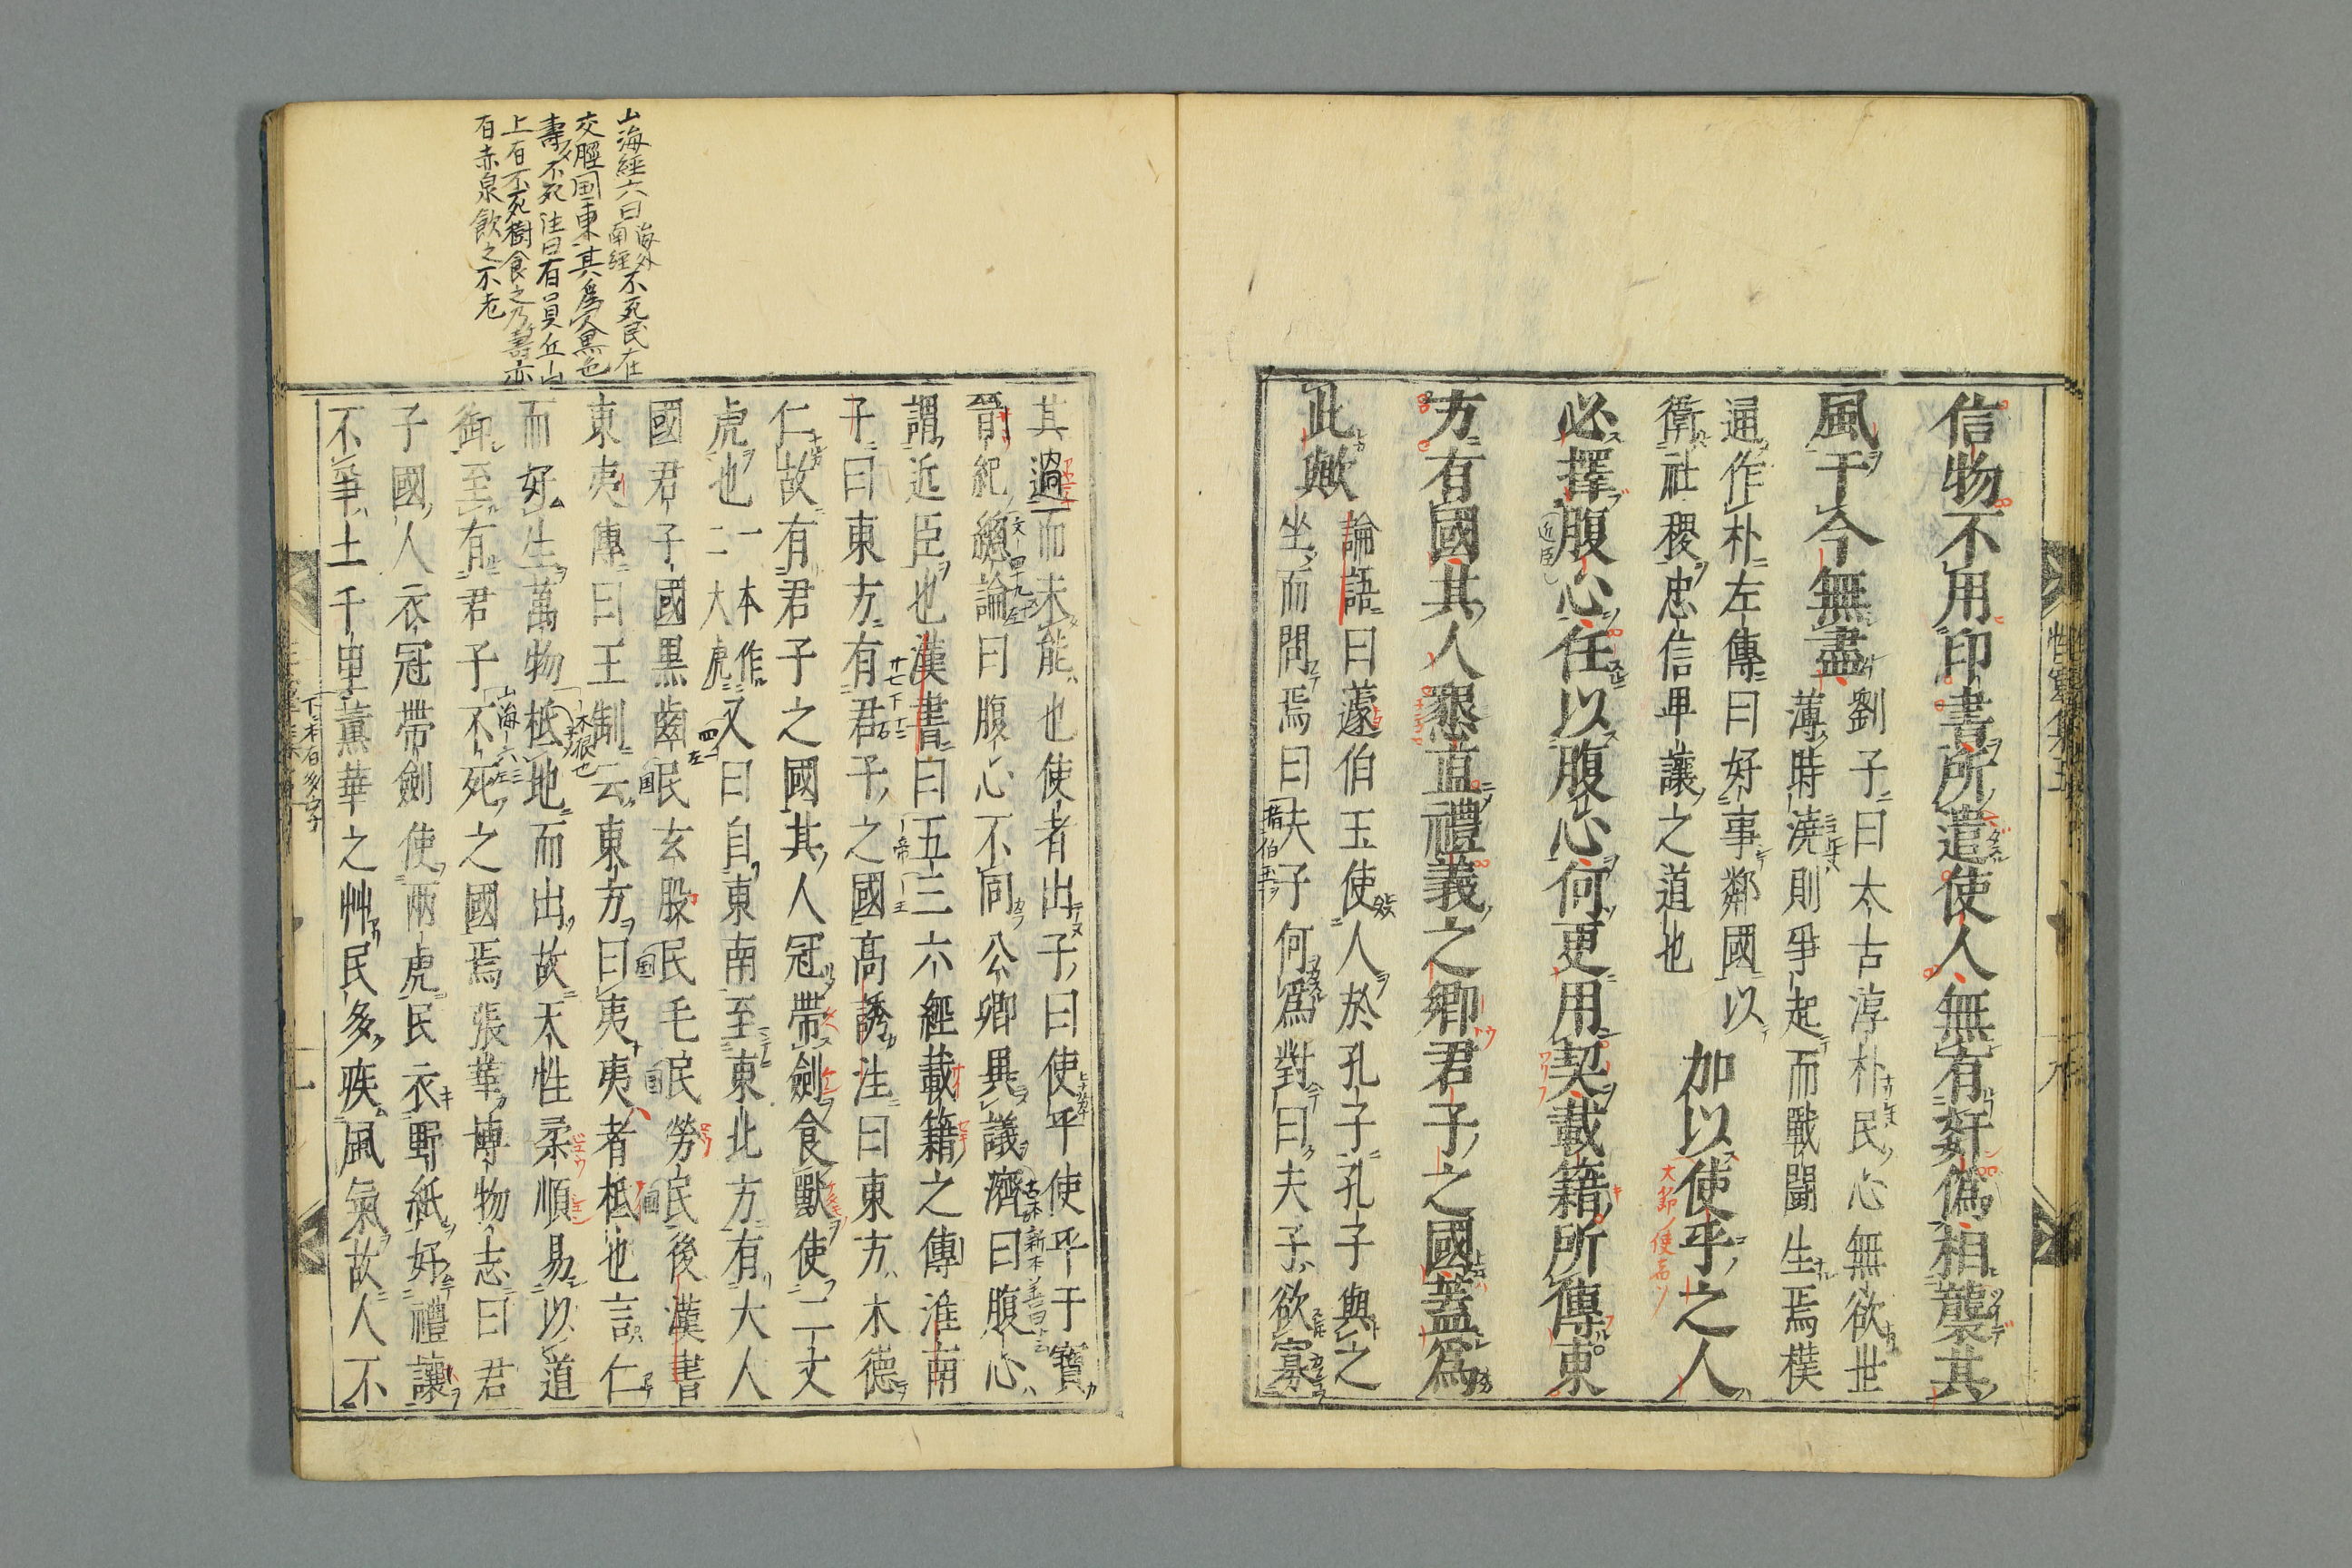 信物不用印書所遣使人無有奸偽相襲其
風于今無盡
劉子曰太古淳朴民心無欲世
薄時澆則爭起而戰鬪生焉樸
通作朴左傳曰好事鄰國以
衛社稷忠信卑讓之道也
加以使乎之人
大節ノ使者ソ
必擇腹心任以腹心何更用契載籍所傳東
近臣
方有國其人懇直禮義之鄉君子之國蓋爲
此歟
論語曰蘧伯玉使人於孔子孔子與之
坐而問焉曰夫子何爲對曰夫子欲寡
性靈集五
其過而未能也使者出子曰使乎使乎于寶
晉紀總論曰腹心不同公卿異議濟曰腹心
謂近臣也漢書曰五三六經載籍之傳淮南
子曰東方有君子之國高誘注曰東方木德
仁故有君子之國其人冠帶劍食獸使二文
虎也
一本作
二大虎
又曰自東南至東北方有大人
國君子國黑齒民玄股民毛民勞民後漢書
東夷傳曰王制云東方曰夷夷者柢也言仁
而好生萬物柢地而出故天性柔順易以道
御至有君子不死之國焉張華博物志曰君
子國人衣冠帶劍使兩虎民衣野紙好禮讓
不爭土千里薰華之艸民多疾風氣故人不
山海經六曰
海外
南經
不死民在
交脛国東其爲人黑色
壽不死注曰有員丘山
上有不死樹食之乃壽亦
有赤泉飲之不老